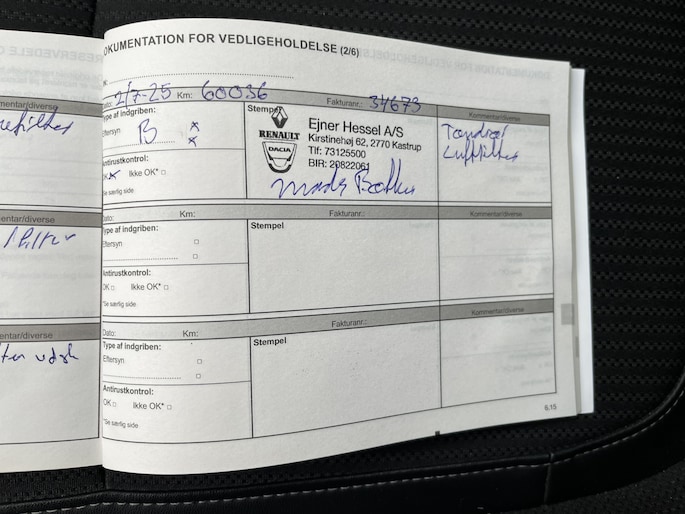 OKUMENTATION FOR VEDLIGEHOLDELSE (2/6)
Dato: 2/7-25 Km: 60036 Fakturanr.: 34673
mentar/diverse
Type af indgriben:
Eftersyn B
Antirustkontrol:
OK Ikke OK*
*Se særlig side
Stempel
RENAULT
DACIA
Ejner Hessel A/S
Kirstinehøj 62, 2770 Kastrup
Tlf: 73125500
BIR: 20822061
Kommentar/diverse
Tændrør
Luftfilter
entar/diverse
Dato: Km: Fakturanr.:
Type af indgriben:
Eftersyn
Antirustkontrol:
OK Ikke OK*
*Se særlig side
Stempel
Kommentar/diverse
entar/diverse
Dato: Km: Fakturanr.:
Type af indgriben:
Eftersyn
Antirustkontrol:
OK Ikke OK*
*Se særlig side
Stempel
Kommentar/diverse
6.15